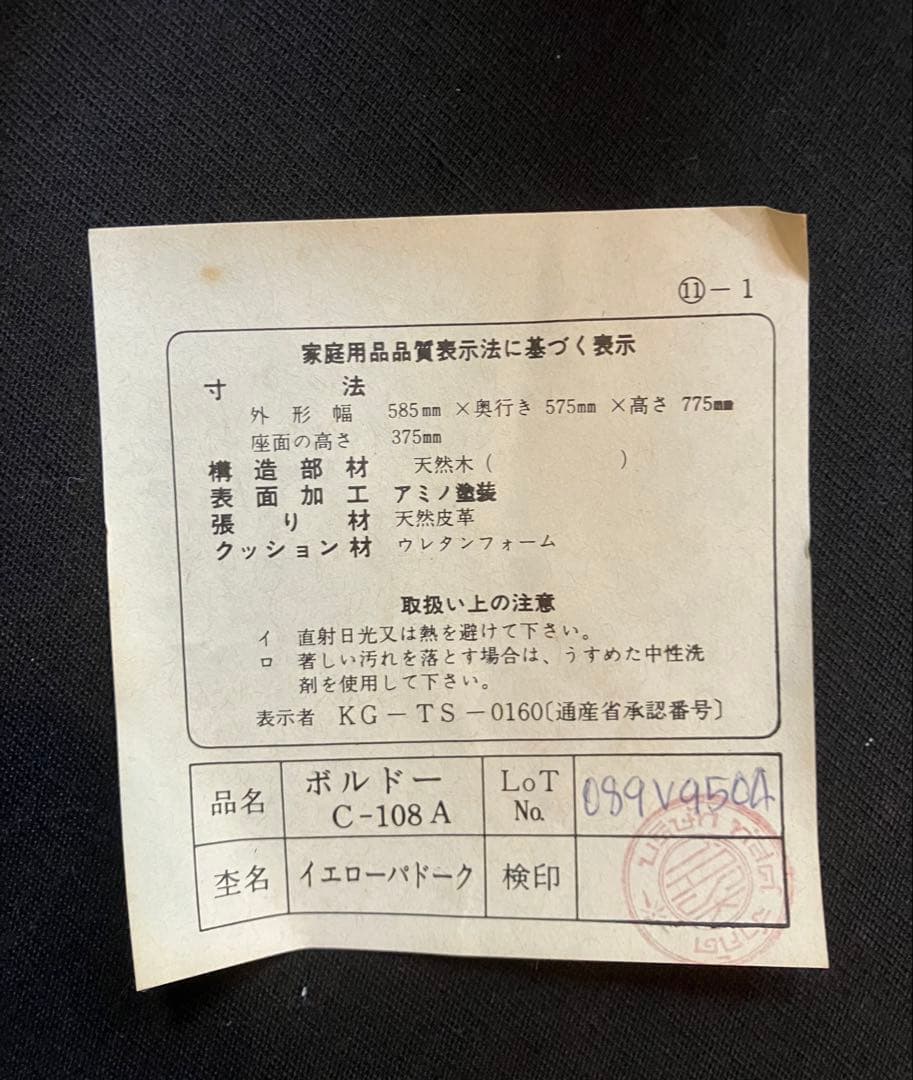 ⑪－1
家庭用品品質表示法に基づく表示
寸法
外形幅 585mm ×奥行き 575mm ×高さ 775mm
座面の高さ 375mm
構造部材 天然木（ ）
表面加工 アミノ塗装
張り材 天然皮革
クッション材 ウレタンフォーム
取扱い上の注意
イ 直射日光又は熱を避けて下さい。
ロ 著しい汚れを落とす場合は、うすめた中性洗
剤を使用して下さい。
表示者 KG－TS－0160〔通産省承認番号〕
品名 ボルドー C-108A LoT No. 089V950A
杢名 イエローパドーク 検印
บริษัท จำกัด